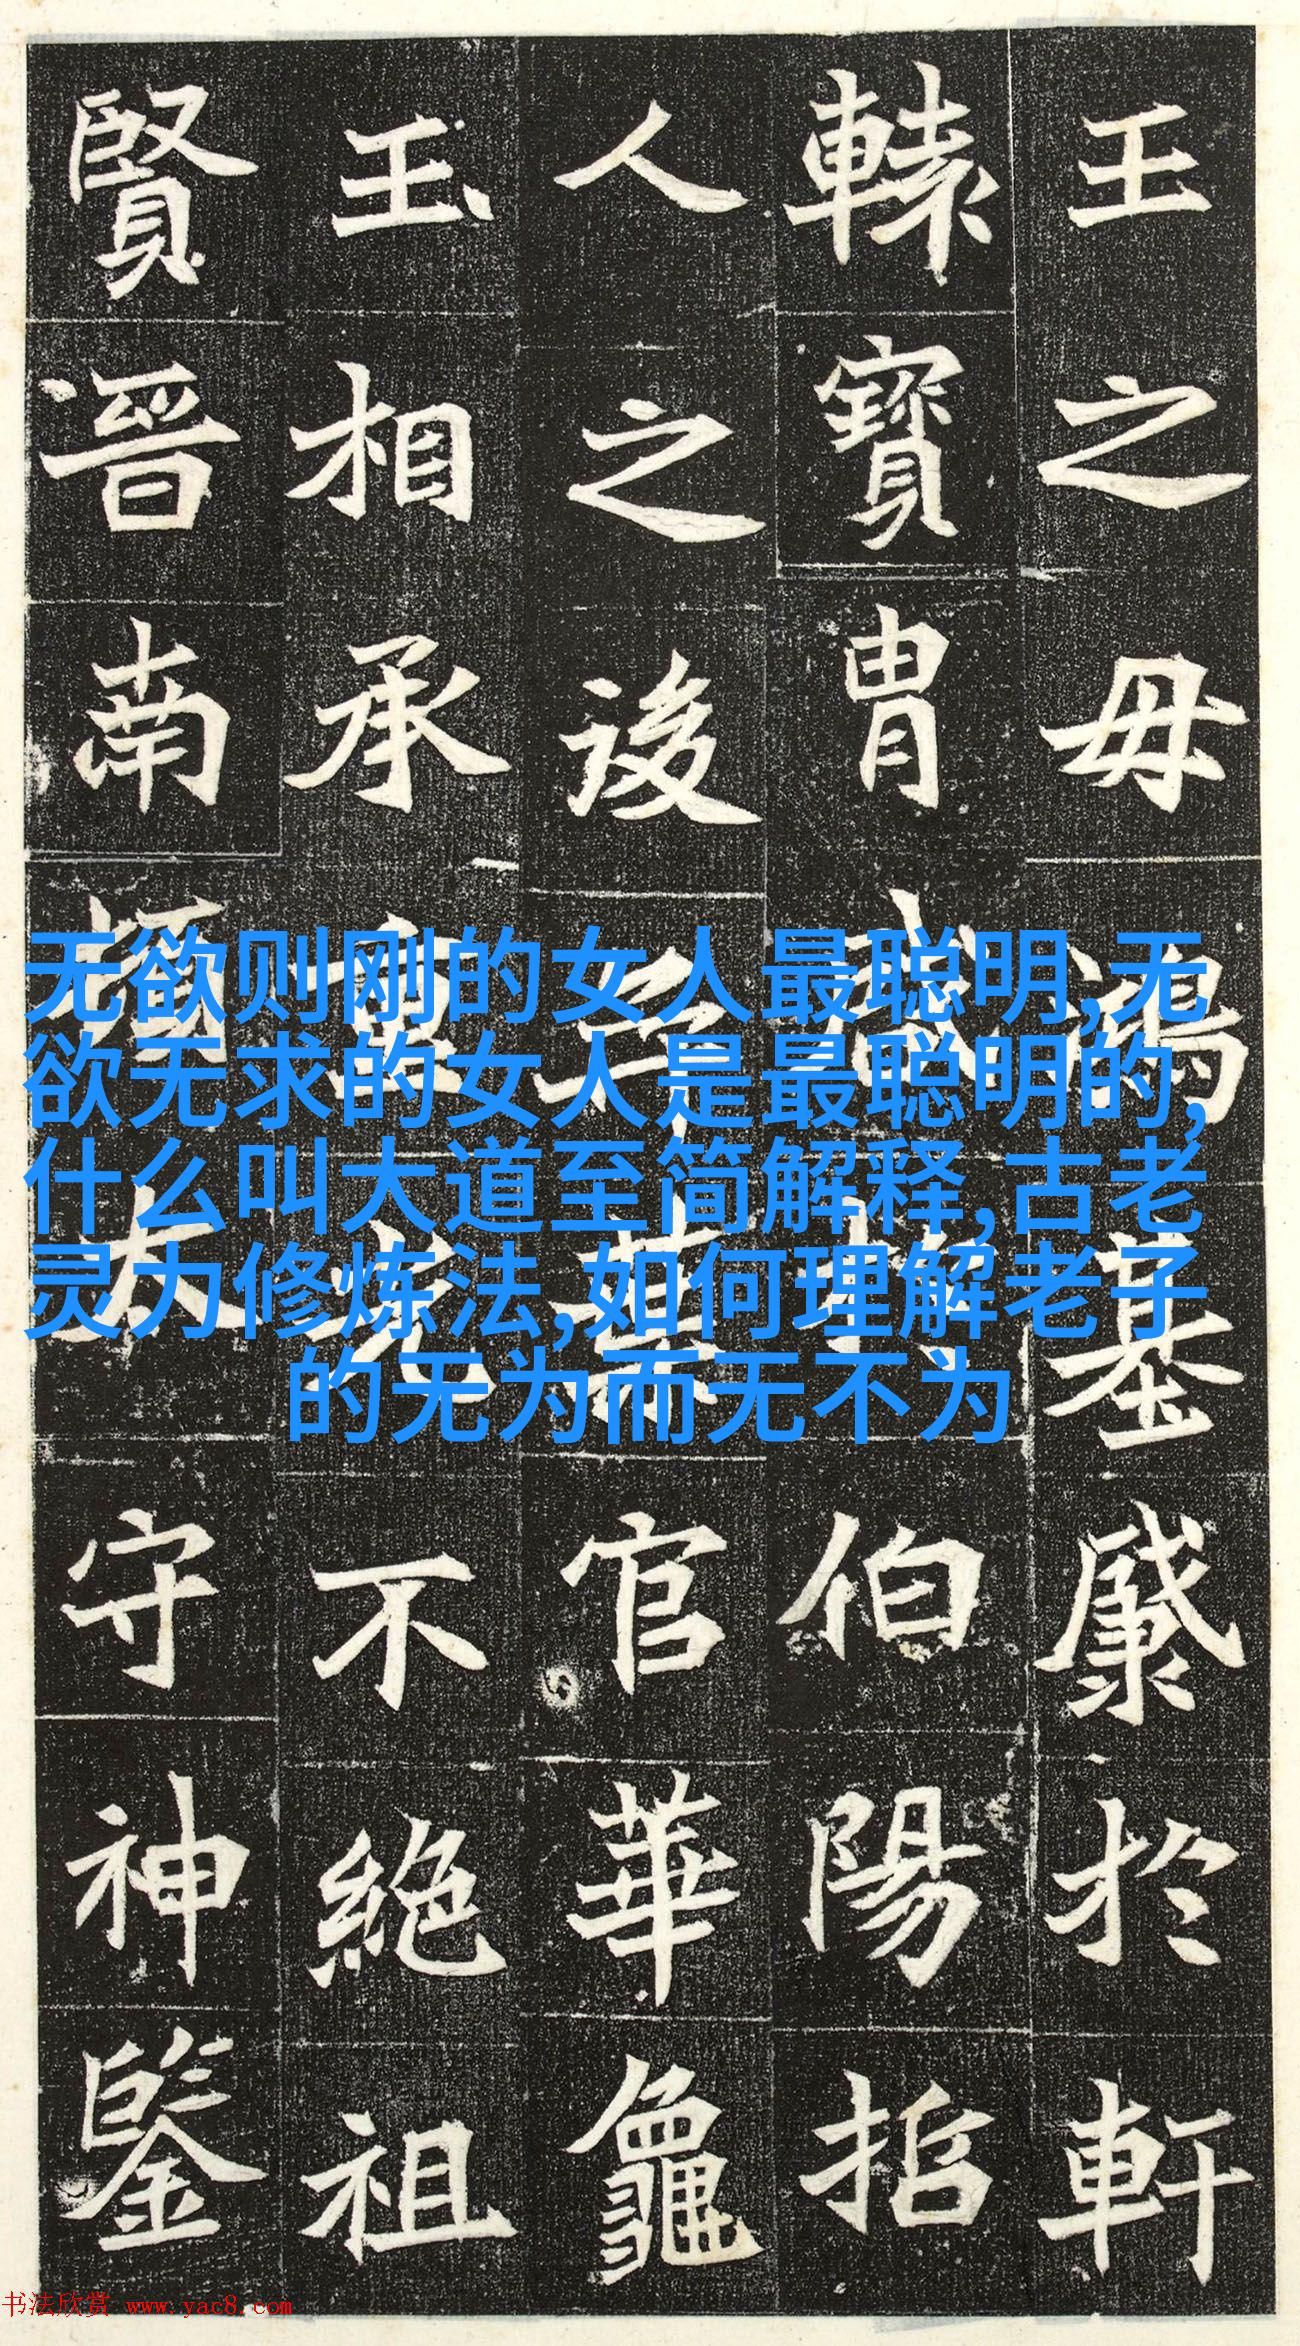 王之毋鴻基於軒
轅寶胄伯陽指
人之後葉官華龜
玉相承重光不絕祖
賢晉南太守神鑒
无欲则刚的女人最聪明,无
欲无求的女人是最聪明的,
什么叫大道至简解释,古老
灵力修炼法,如何理解老子
的无为而无不为
书法欣赏 www.yac8.com